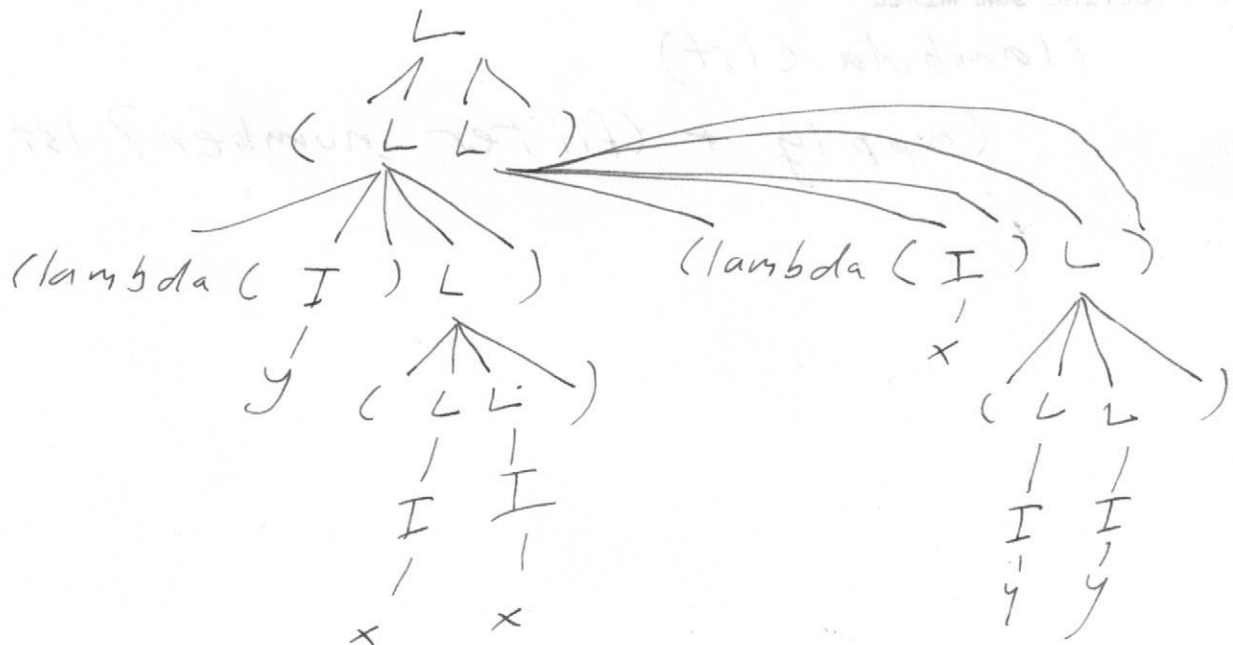 L
( L L )
(lambda ( I ) L ) (lambda ( I ) L )
y ( L L ) x ( L L )
I I I I
x x y y